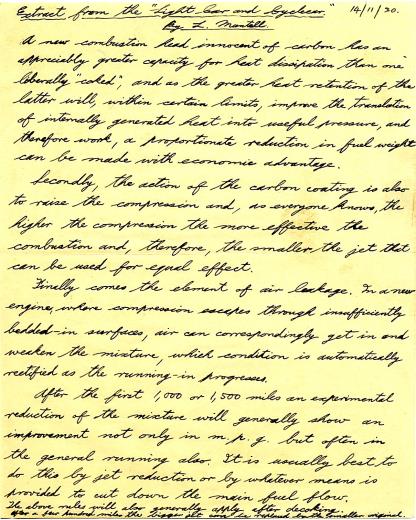 Extract from the "Light Car and Cyclecar" 14/11/20.
By L. Mantell.
A new combustion head innocent of carbon has an
appreciably greater capacity for heat dissipation than one
liberally "coked", and as the greater heat retention of the
latter will, within certain limits, improve the translation
of internally generated heat into useful pressure, and
therefore work, a proportionate reduction in fuel weight
can be made with economic advantage.
Secondly, the action of the carbon coating is also
to raise the compression and, as everyone knows, the
higher the compression the more effective the
combustion and, therefore, the smaller the jet that
can be used for equal effect.
Finally comes the element of air leakage. In a new
engine, where compression escapes through insufficiently
bedded-in surfaces, air can correspondingly get in and
weaken the mixture, which condition is automatically
rectified as the running-in progresses.
After the first 1,000 or 1,500 miles an experimental
reduction of the mixture will generally show an
improvement not only in m.p.g. but often in
the general running also. It is usually best to
do this by jet reduction or by whatever means is
provided to cut down the main fuel flow.
The above rules will also generally apply after decoking.
After a few hundred miles the bigger jet can be replaced by the smaller original.